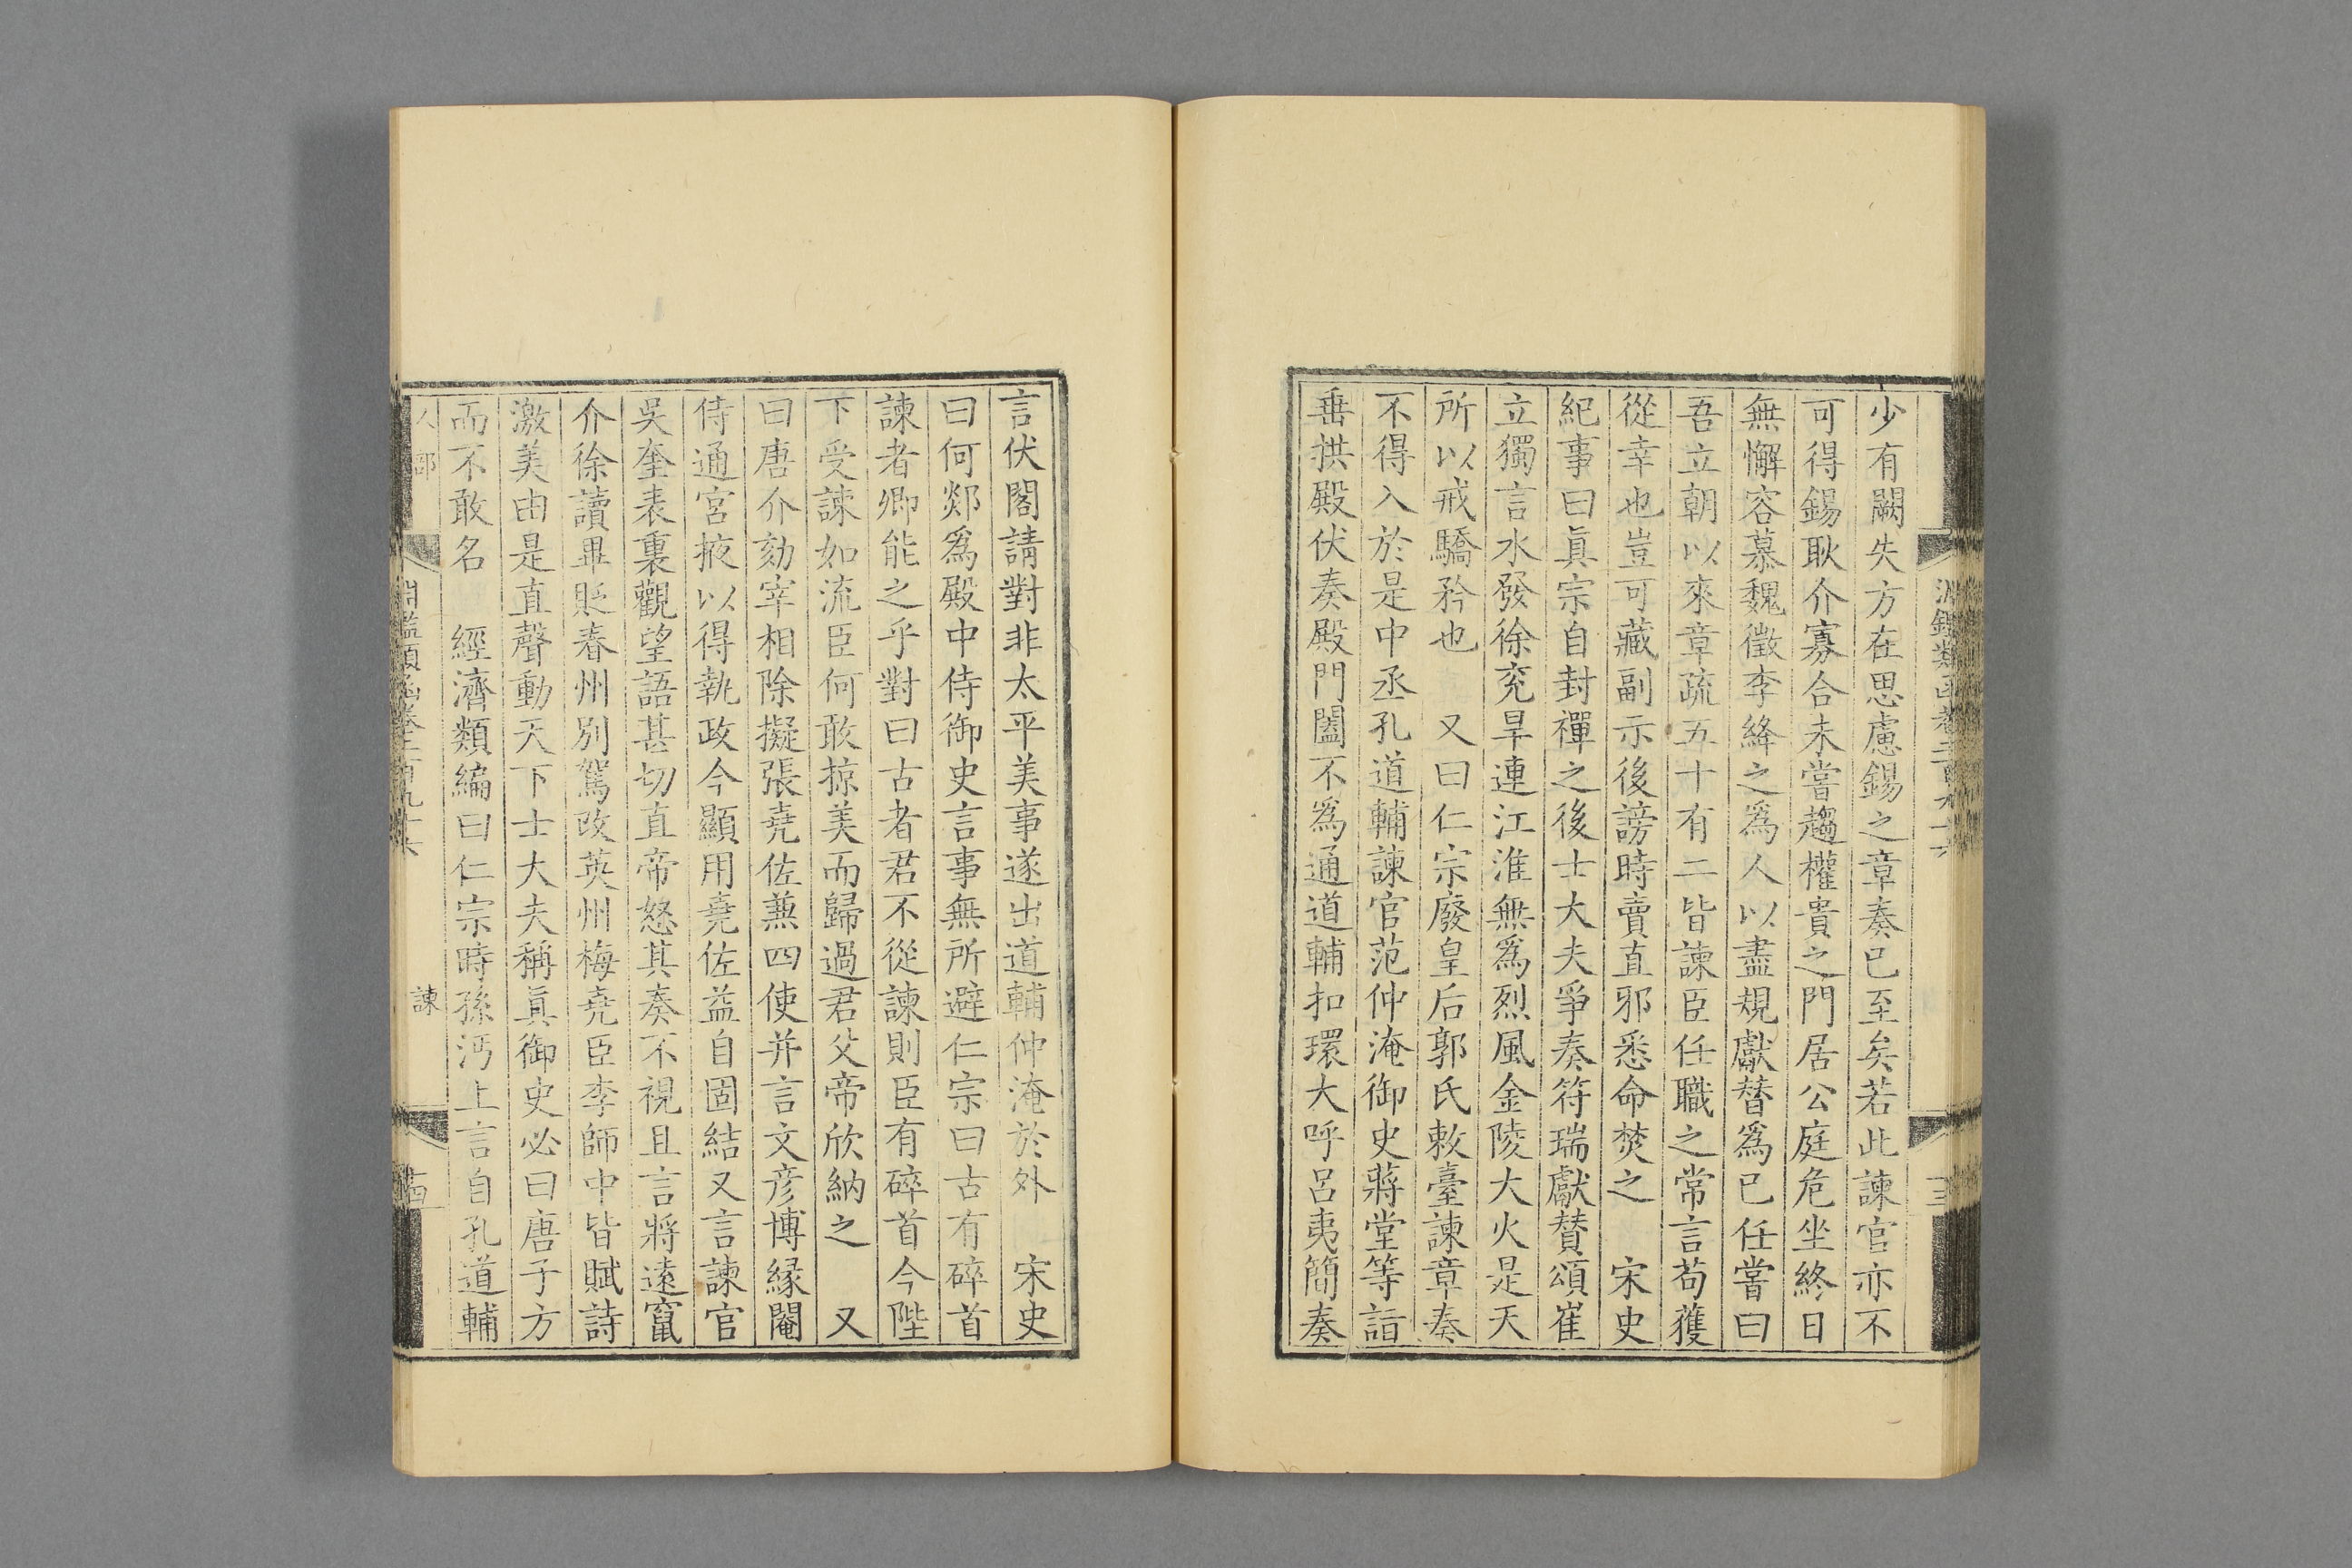 少有闕失方在思慮錫之章奏已至矣若此諫官亦不
可得錫耿介寡合未嘗趨權貴之門居公庭危坐終日
無懈容慕魏徵李絳之爲人以盡規獻替爲已任嘗曰
吾立朝以來章疏五十有二皆諫臣任職之常言苟獲
從幸也豈可藏副示後謗時賣直邪悉命焚之　宋史
紀事曰眞宗自封禪之後士大夫爭奏符瑞獻賛頌崔
立獨言水發徐兖旱連江淮無爲烈風金陵大火是天
所以戒驕矜也　又曰仁宗廢皇后郭氏敕臺諫章奏
不得入於是中丞孔道輔諫官范仲淹御史蔣堂等詣
垂拱殿伏奏殿門闔不爲通道輔扣環大呼呂夷簡奏
言伏閣請對非太平美事遂出道輔仲淹於外　宋史
曰何郯爲殿中侍御史言事無所避仁宗曰古有碎首
諫者卿能之乎對曰古者君不從諫則臣有碎首今陛
下受諫如流臣何敢掠美而歸過君父帝欣納之　又
曰唐介劾宰相除擬張堯佐兼四使并言文彦博緣閹
侍通宮掖以得執政今顯用堯佐益自固結又言諫官
吳奎表裏觀望語甚切直帝怒其奏不視且言將遠竄
介徐讀畢貶春州別駕改英州梅堯臣李師中皆賦詩
激美由是直聲動天下士大夫稱眞御史必曰唐子方
而不敢名　經濟類編曰仁宗時孫沔上言自孔道輔
人部
諫